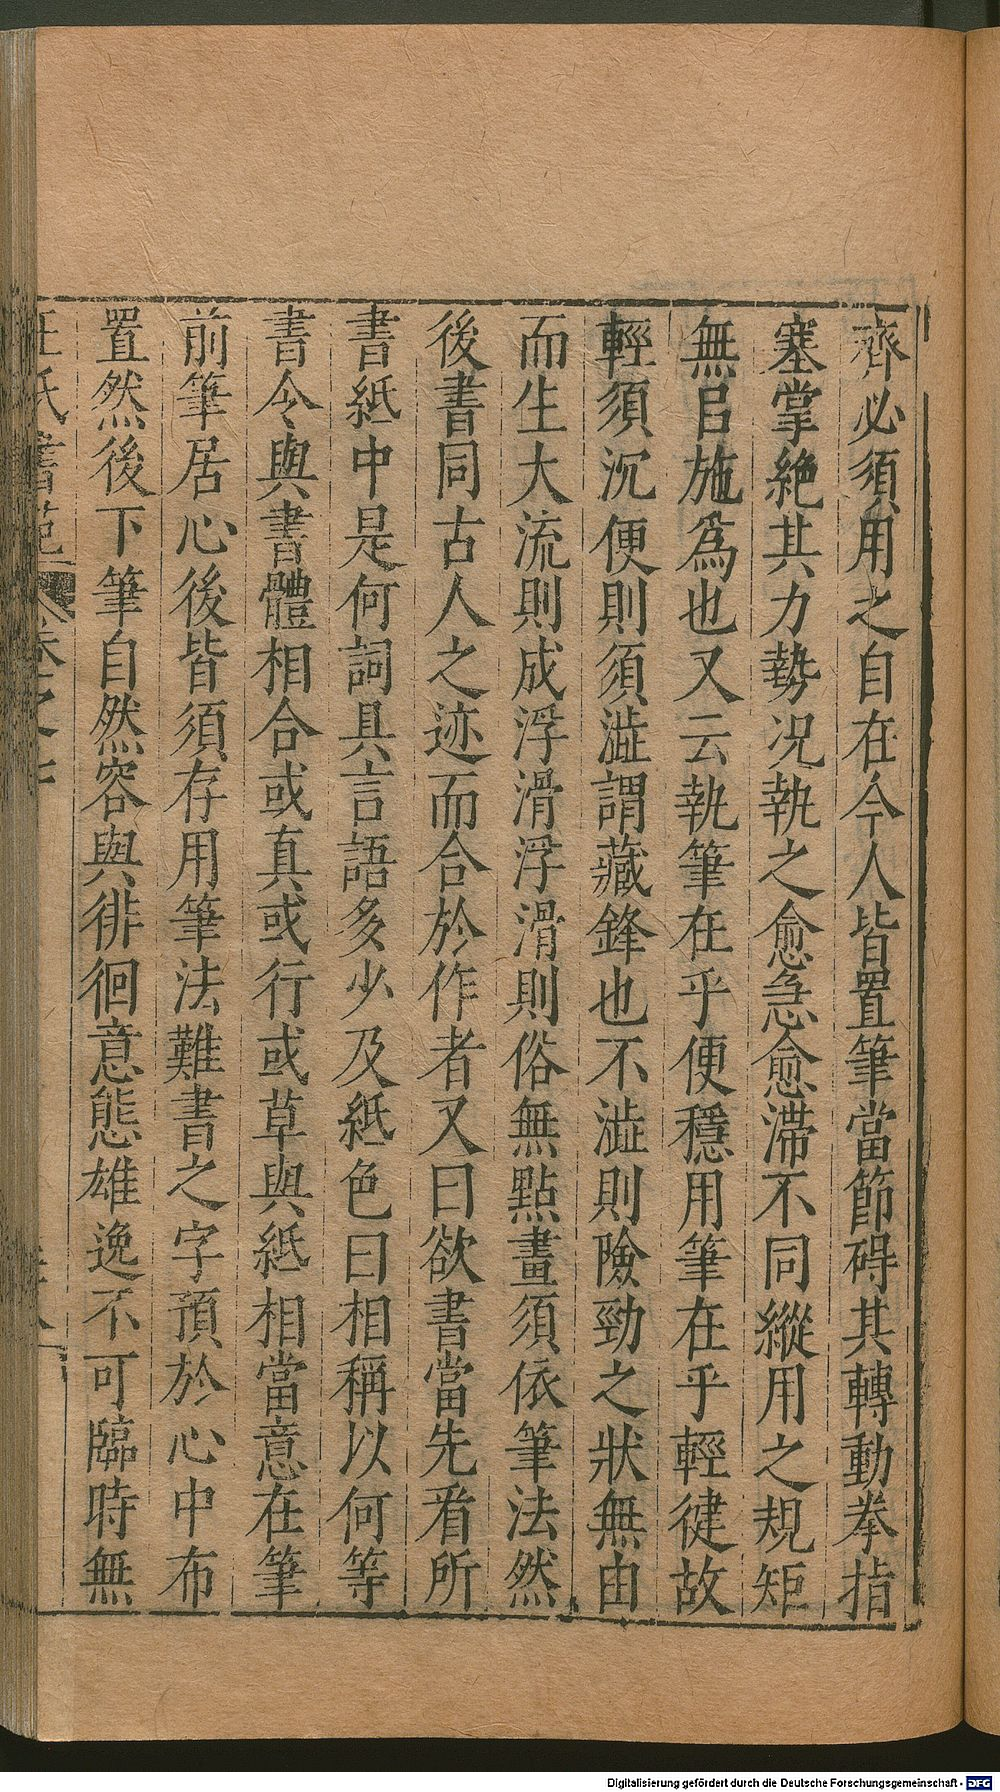 齊必須用之自在今人皆置筆當節碍其轉動拳指
塞掌絶其力勢况執之愈急愈滯不同縱用之規矩
無㠯施爲也又云執筆在乎便穩用筆在乎輕徤故
輕須沉便則須澁謂藏鋒也不澁則險勁之狀無由
而生大流則成浮滑浮滑則俗無點畫須依筆法然
後書同古人之迹而合於作者又曰欲書當先看所
書紙中是何詞具言語多少及紙色曰相稱以何等
書令與書體相合或真或行或草與紙相當意在筆
前筆居心後皆須存用筆法難書之字預於心中布
置然後下筆自然容與徘徊意態雄逸不可臨時無
汪氏書苑 卷之七
Digitalisierung gefördert durch die Deutsche Forschungsgemeinschaft - DFG